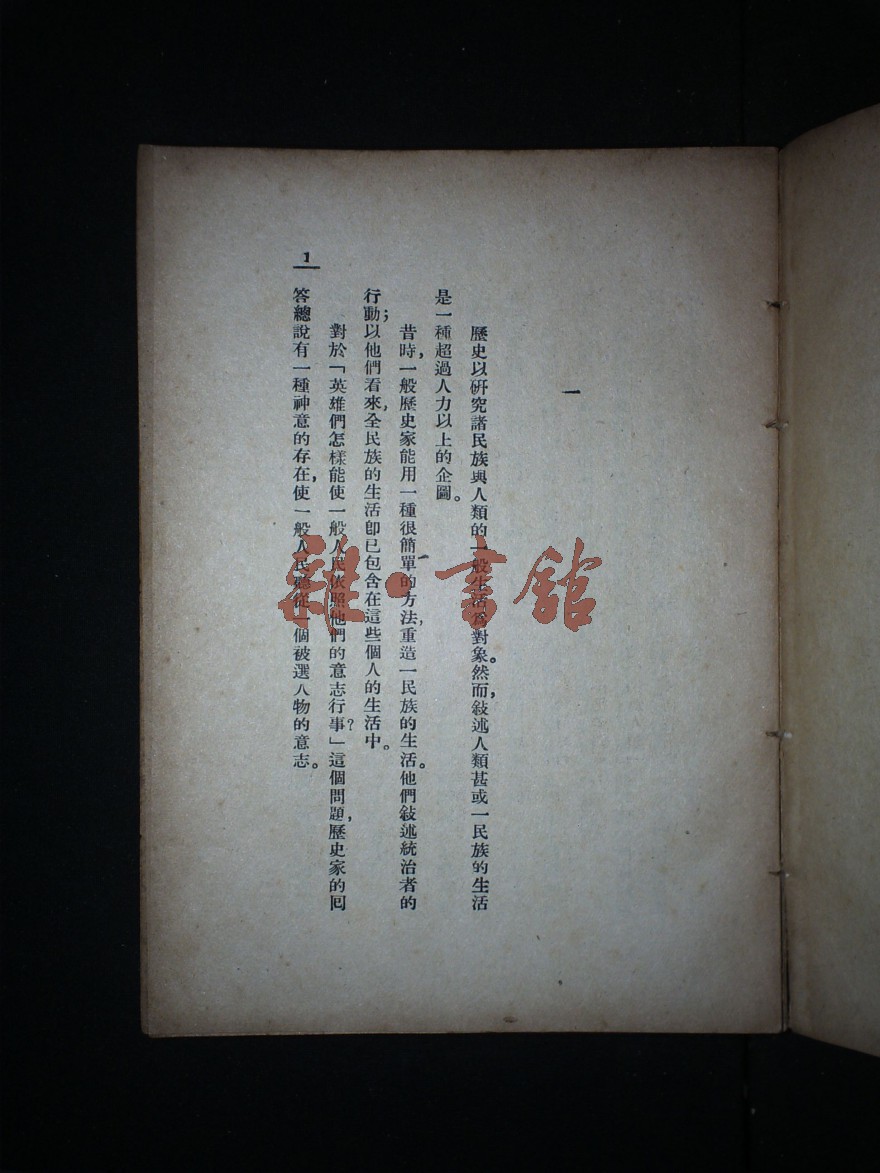 一
歷史以研究諸民族與人類的一般生活爲對象。然而,敍述人類甚或一民族的生活
是一種超過人力以上的企圖。
昔時,一般歷史家能用一種很簡單的方法,重造一民族的生活。他們敍述統治者的
行動;以他們看來,全民族的生活卽已包含在這些個人的生活中。
對於「英雄們怎樣能使一般人民依照他們的意志行事?」這個問題,歷史家的囘
答總說有一種神意的存在,使一般人民聽從一個被選人物的意志。
1
雜·書館